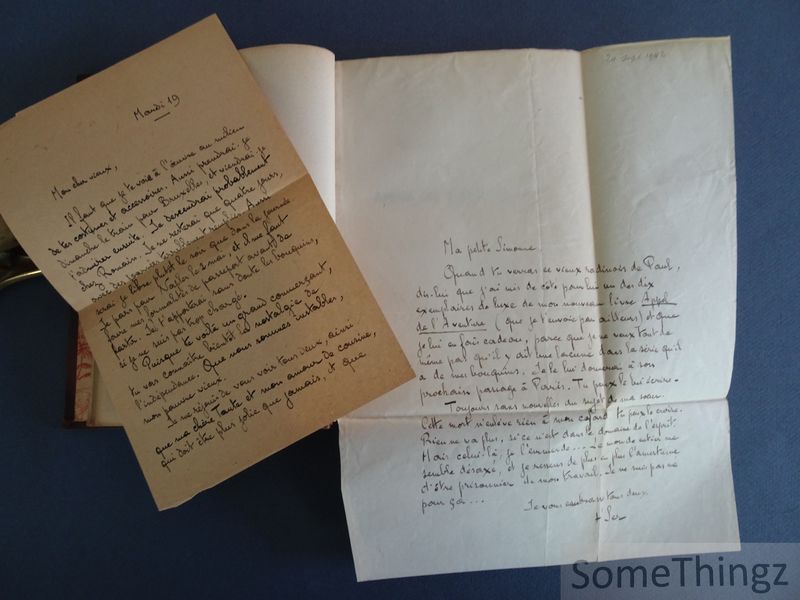 Mardi 19
Mon cher vieux,
Il faut que je te voie à l'œuvre au milieu
de tes costumes et accessoires. Aussi prendrai-je
dimanche le train pour Bruxelles, et viendrai-je
t'admirer ensuite. Je descendrai probablement
chez Romain. Je ne resterai que quatre jours,
Aussi
je plutôt le soir que dans la journée
Je pars pour Naples le 2 mai, et il me faut
faire mes formalités de passeport avant de
partir. Je t'apporterai sans doute les bouquins,
si je ne suis pas trop chargé.
Puisque te voilà un grand commerçant,
tu vas connaître bientôt la nostalgie de
l'indépendance. Que nous sommes instables,
mon pauvre vieux.
Je me réjouis de vous voir tous deux, ainsi
que ma chère Tante et mon amour de cousine,
qui doit être plus jolie que jamais, et que
1942
Ma petite Simone
Quand tu verras ce vieux radinois de Paul,
dis-lui que j'ai mis de côté pour lui un des dix
exemplaires de luxe de mon nouveau livre Appel
de l'Aventure (que je t'envoie par ailleurs) et que
je lui en fais cadeau, parce que je ne veux tout de
même pas qu'il y ait une lacune dans la série qu'il
a de mes bouquins. Je le lui donnerai à son
prochain passage à Paris. Tu peux le lui écrire.
Toujours sans nouvelles du sujet de ma sœur.
Cette mort n'enlève rien à mon cafard, tu peux le croire.
Rien ne va plus, si ce n'est dans le domaine de l'esprit
Mais celui-là, je l'emmerde... Le monde entier me
semble désaxé, et je ressens de plus en plus l'amertume
d'être prisonnier de mon travail. Je ne suis pas né
pour ça...
Je vous embrasse tous deux
SomeThingz